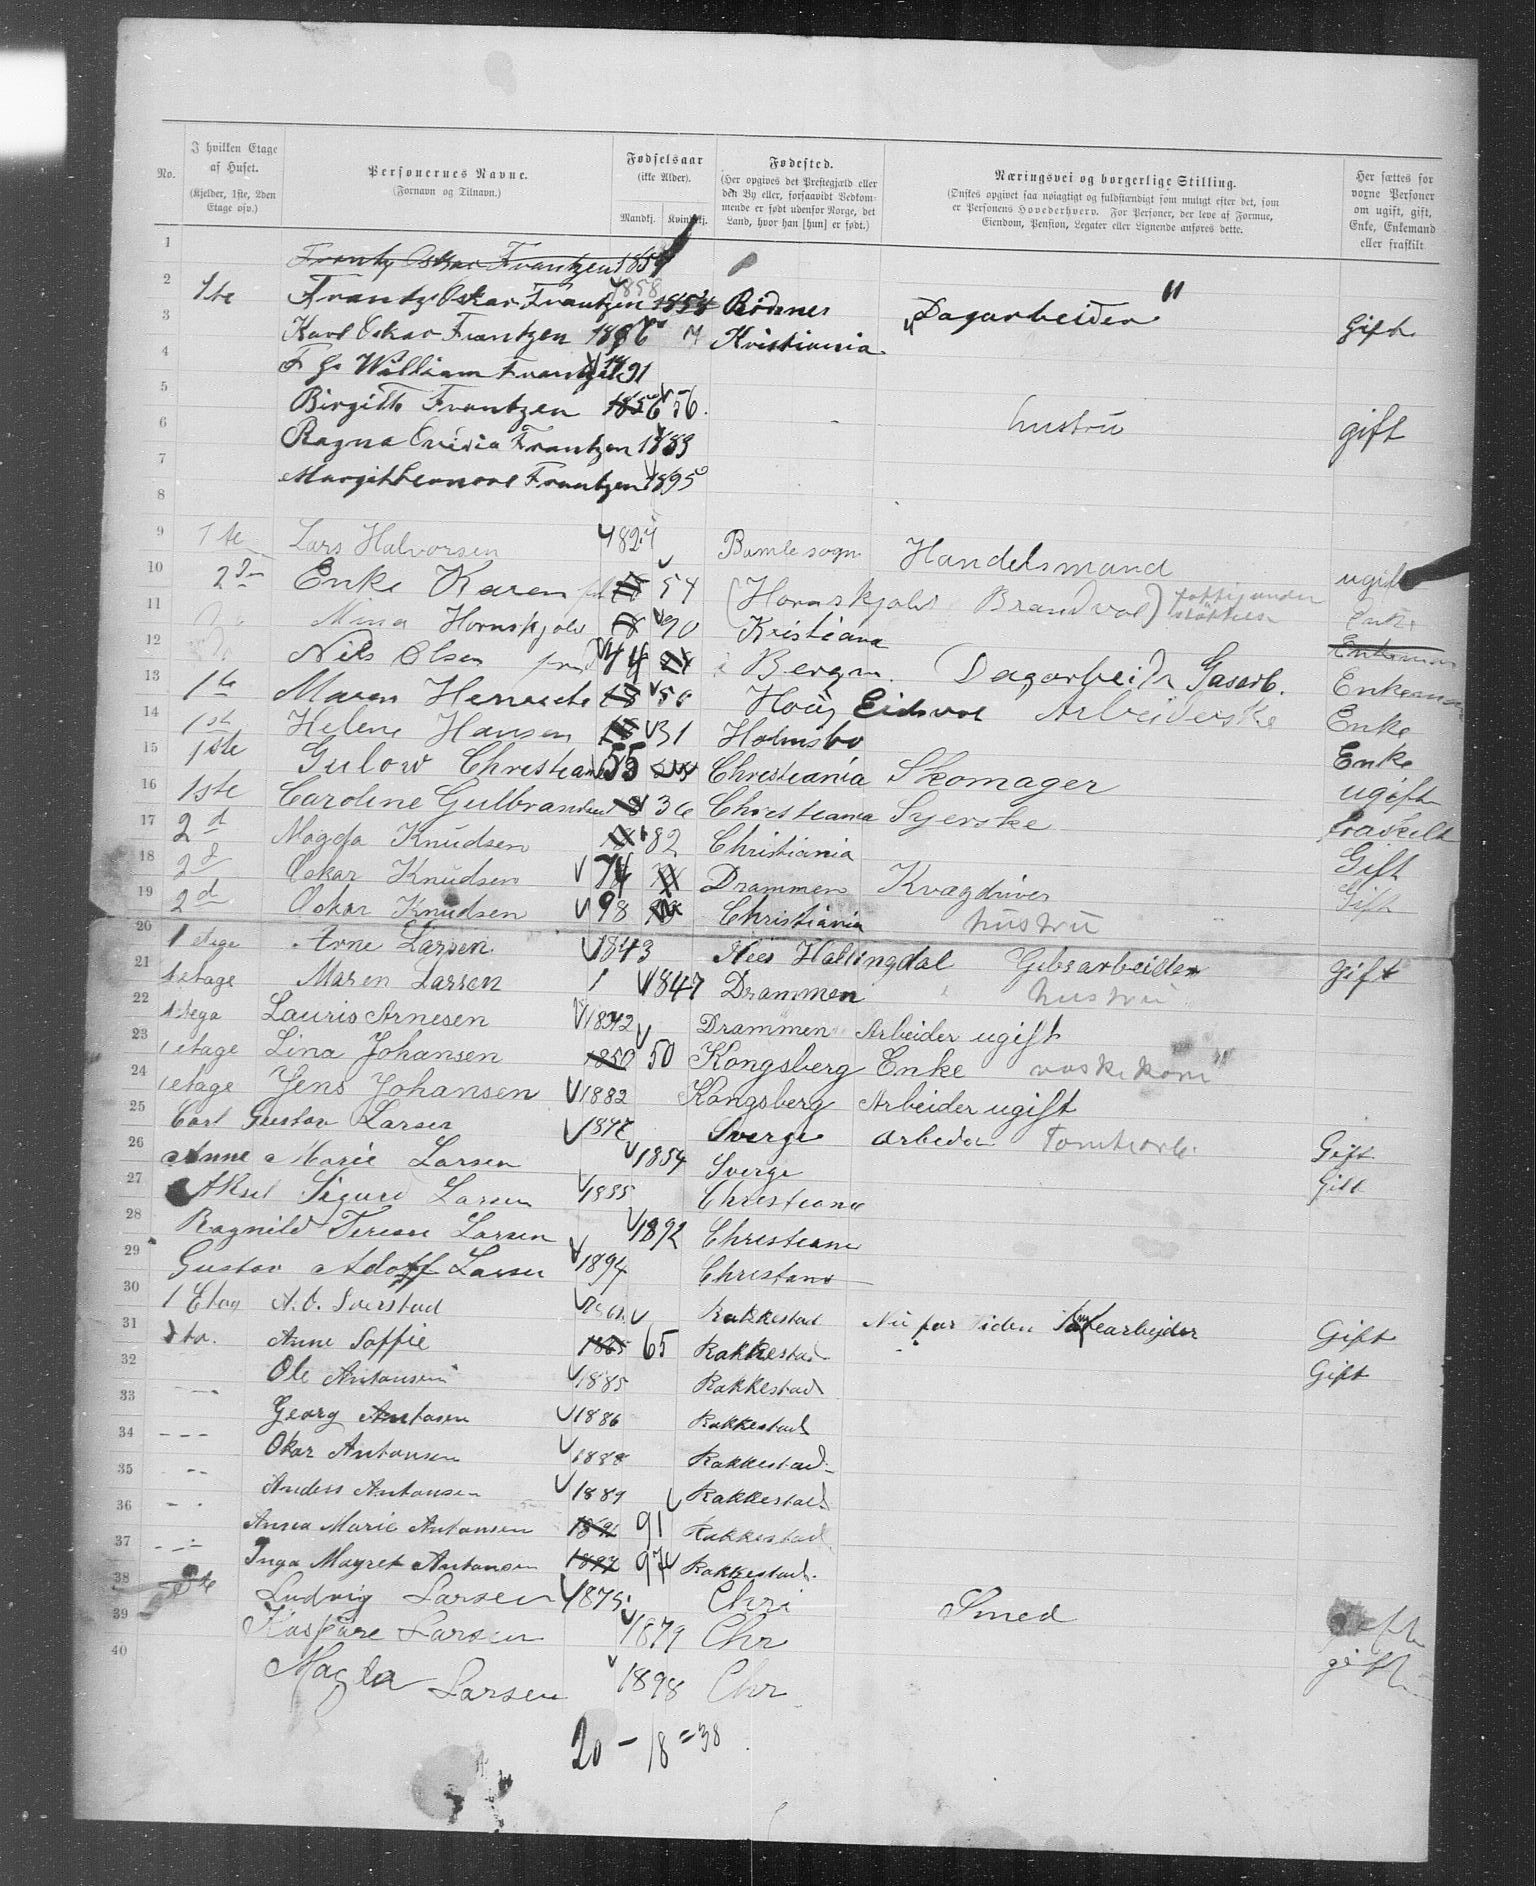 No.
I hvilken Etage af Huset.
(Kjelder, 1ste, 2den Etage osv.)
Personernes Navne.
(Fornavn og Tilnavn.)
Fødselsaar
(ikke Alder).
Mandkj. Kvindkj.
Fødested.
(Her opgives det Prestegjæld eller den By eller, forsaavidt Vedkommende er født udenfor Norge, det Land, hvor han [hun] er født.)
Næringsvei og borgerlige Stilling.
(Ønskes opgivet saa nøiagtigt og fuldstændigt som muligt efter det, som er Personens Hovederhverv. For Personer, der leve af Formue, Eiendom, Pension, Legater eller Lignende anføres dette.
Her sættes for voxne Personer om ugift, gift, Enke, Enkemand eller fraskilt.
1 Frantz Oskar Frantzen
2 1te Frantz Oskar Frantzen 1858 Rødenes Dagarbeider " Gift
3 Karl Oskar Frantzen Kristiania
4 William Frantzen 91
5 Birgitte Frantzen 1856 56. hustru gift
6 Ragna Frantzen 1883
7 Margit Leonore Frantzen 1895
8
9 1te Lars Halvorsen Bamle sogn Handelsmand ugift
10 2den Enke Karen 54 (Hornskjold Brandvol) Enke
11 Mina Hornskjold 90 Kristiana
12 Nils Olsen 44 Bergen. Dagarbeider Gasarb. Enkeman
13 1te Maren 50 Eidsvol Arbeiderske Enke
14 1st Helene Hansen 31 Holmsbo Enke
15 1ste Gulow Christian 55 Christiania Skomager ugift
16 1ste Caroline Gulbrandsen 36 Christiania Syerske fraskilt
17 2d Magda Knudsen 82 Christiania Gift
18 2d Oskar Knudsen 74 Drammen Kvægdriver Gift
19 2d Oskar Knudsen 98 Christiania hustru
20 1 etage Arne Larsen 1843 Næs Hallingdal Gibsarbeider Gift
21 1 etage Maren Larsen 1 1847 Drammen hustru
22 Lauris Arnesen Drammen Arbeider ugift
23 1 etage Lina Johansen 1850 50 Kongsberg Enke vaskekone
24 1 etage Jens Johansen 1882 Kongsberg Arbeider ugift
25 Carl Gustav Larsen Sverge arbeider Tomtearb. Gift
26 Anne Marie Larsen 1854 Sverge Gift
27 Aksel Sigurd Larsen 1885 Christiania
28 Ragnild Terese Larsen 1892 Christiana
29 Gustav Adolf Larsen 1894 Christiana
30 1 Etag A. O. Sverstad Rakkestad Nu for Tiden Tomtearbeider Gift
31 Anne Soffie 1865 65 Rakkestad Gift
32 Ole Antonsen 1885 Rakkestad
33 Georg Antonsen 1886 Rakkestad
34 --- Okar Antonsen 1888 Rakkestad
35 -- Anders Antonsen 1889 Rakkestad
36 - - Anna Marie Antonsen 91 Rakkestad
37 --- Inga Magret Antonsen 1897 97 Rakkestad.
38 Ludvig Larsen 1875. Chri Smed gift
39 Kaspare Larsen 1879 Chr gift
40 Magda Larsen 1898 Chr
20 - 18 = 38